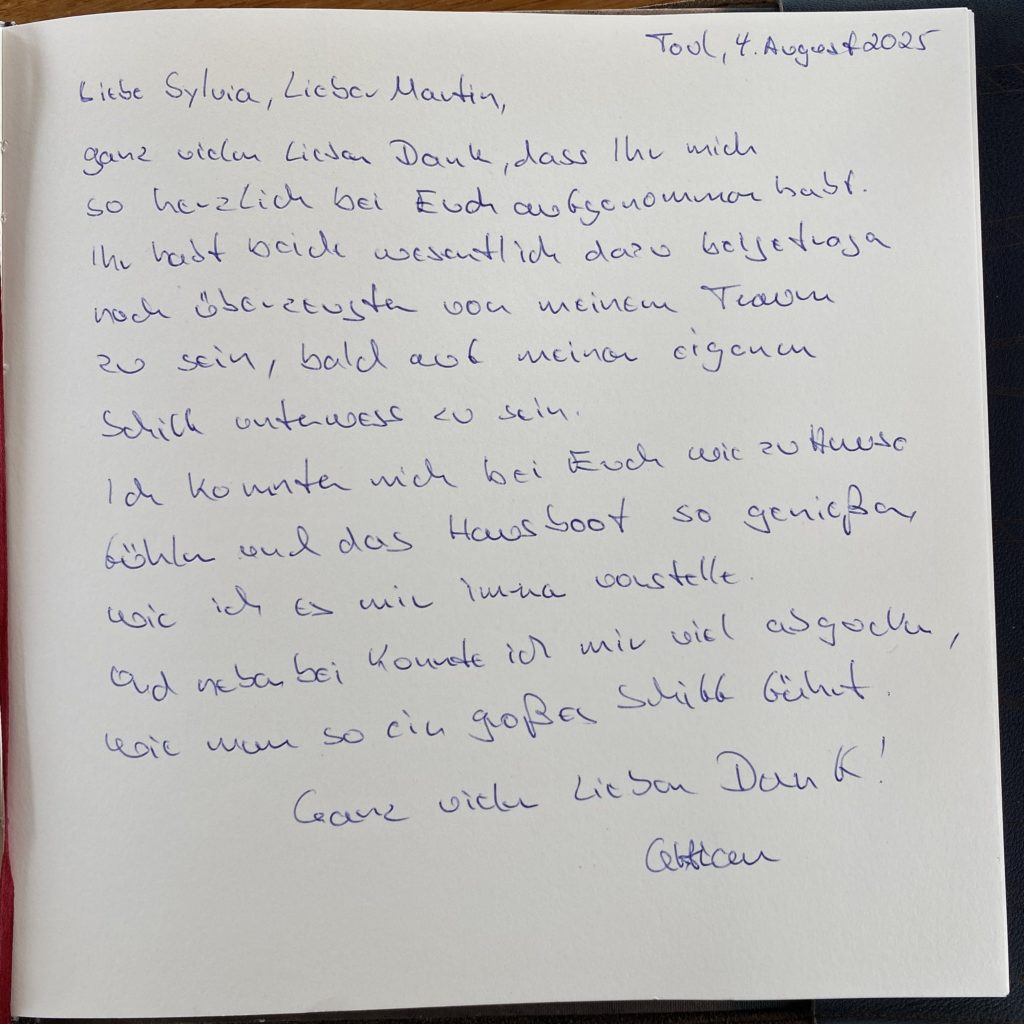 Toul, 4. August 2025
Liebe Sylvia, Lieber Martin,
ganz vielen lieben Dank, dass Ihr mich
so herzlich bei Euch aufgenommen habt.
Ihr habt beide wesentlich dazu beigetragen
noch überzeugter von meinem Traum
zu sein, bald auf meinem eigenen
Schiff unterwegs zu sein.
Ich konnte mich bei Euch wie zu Hause
fühlen und das Hausboot so genießen,
wie ich es mir immer vorstelle.
Und nebenbei konnte ich mir viel abgucken,
wie man so ein großes Schiff führt.
Ganz vielen lieben Dank!